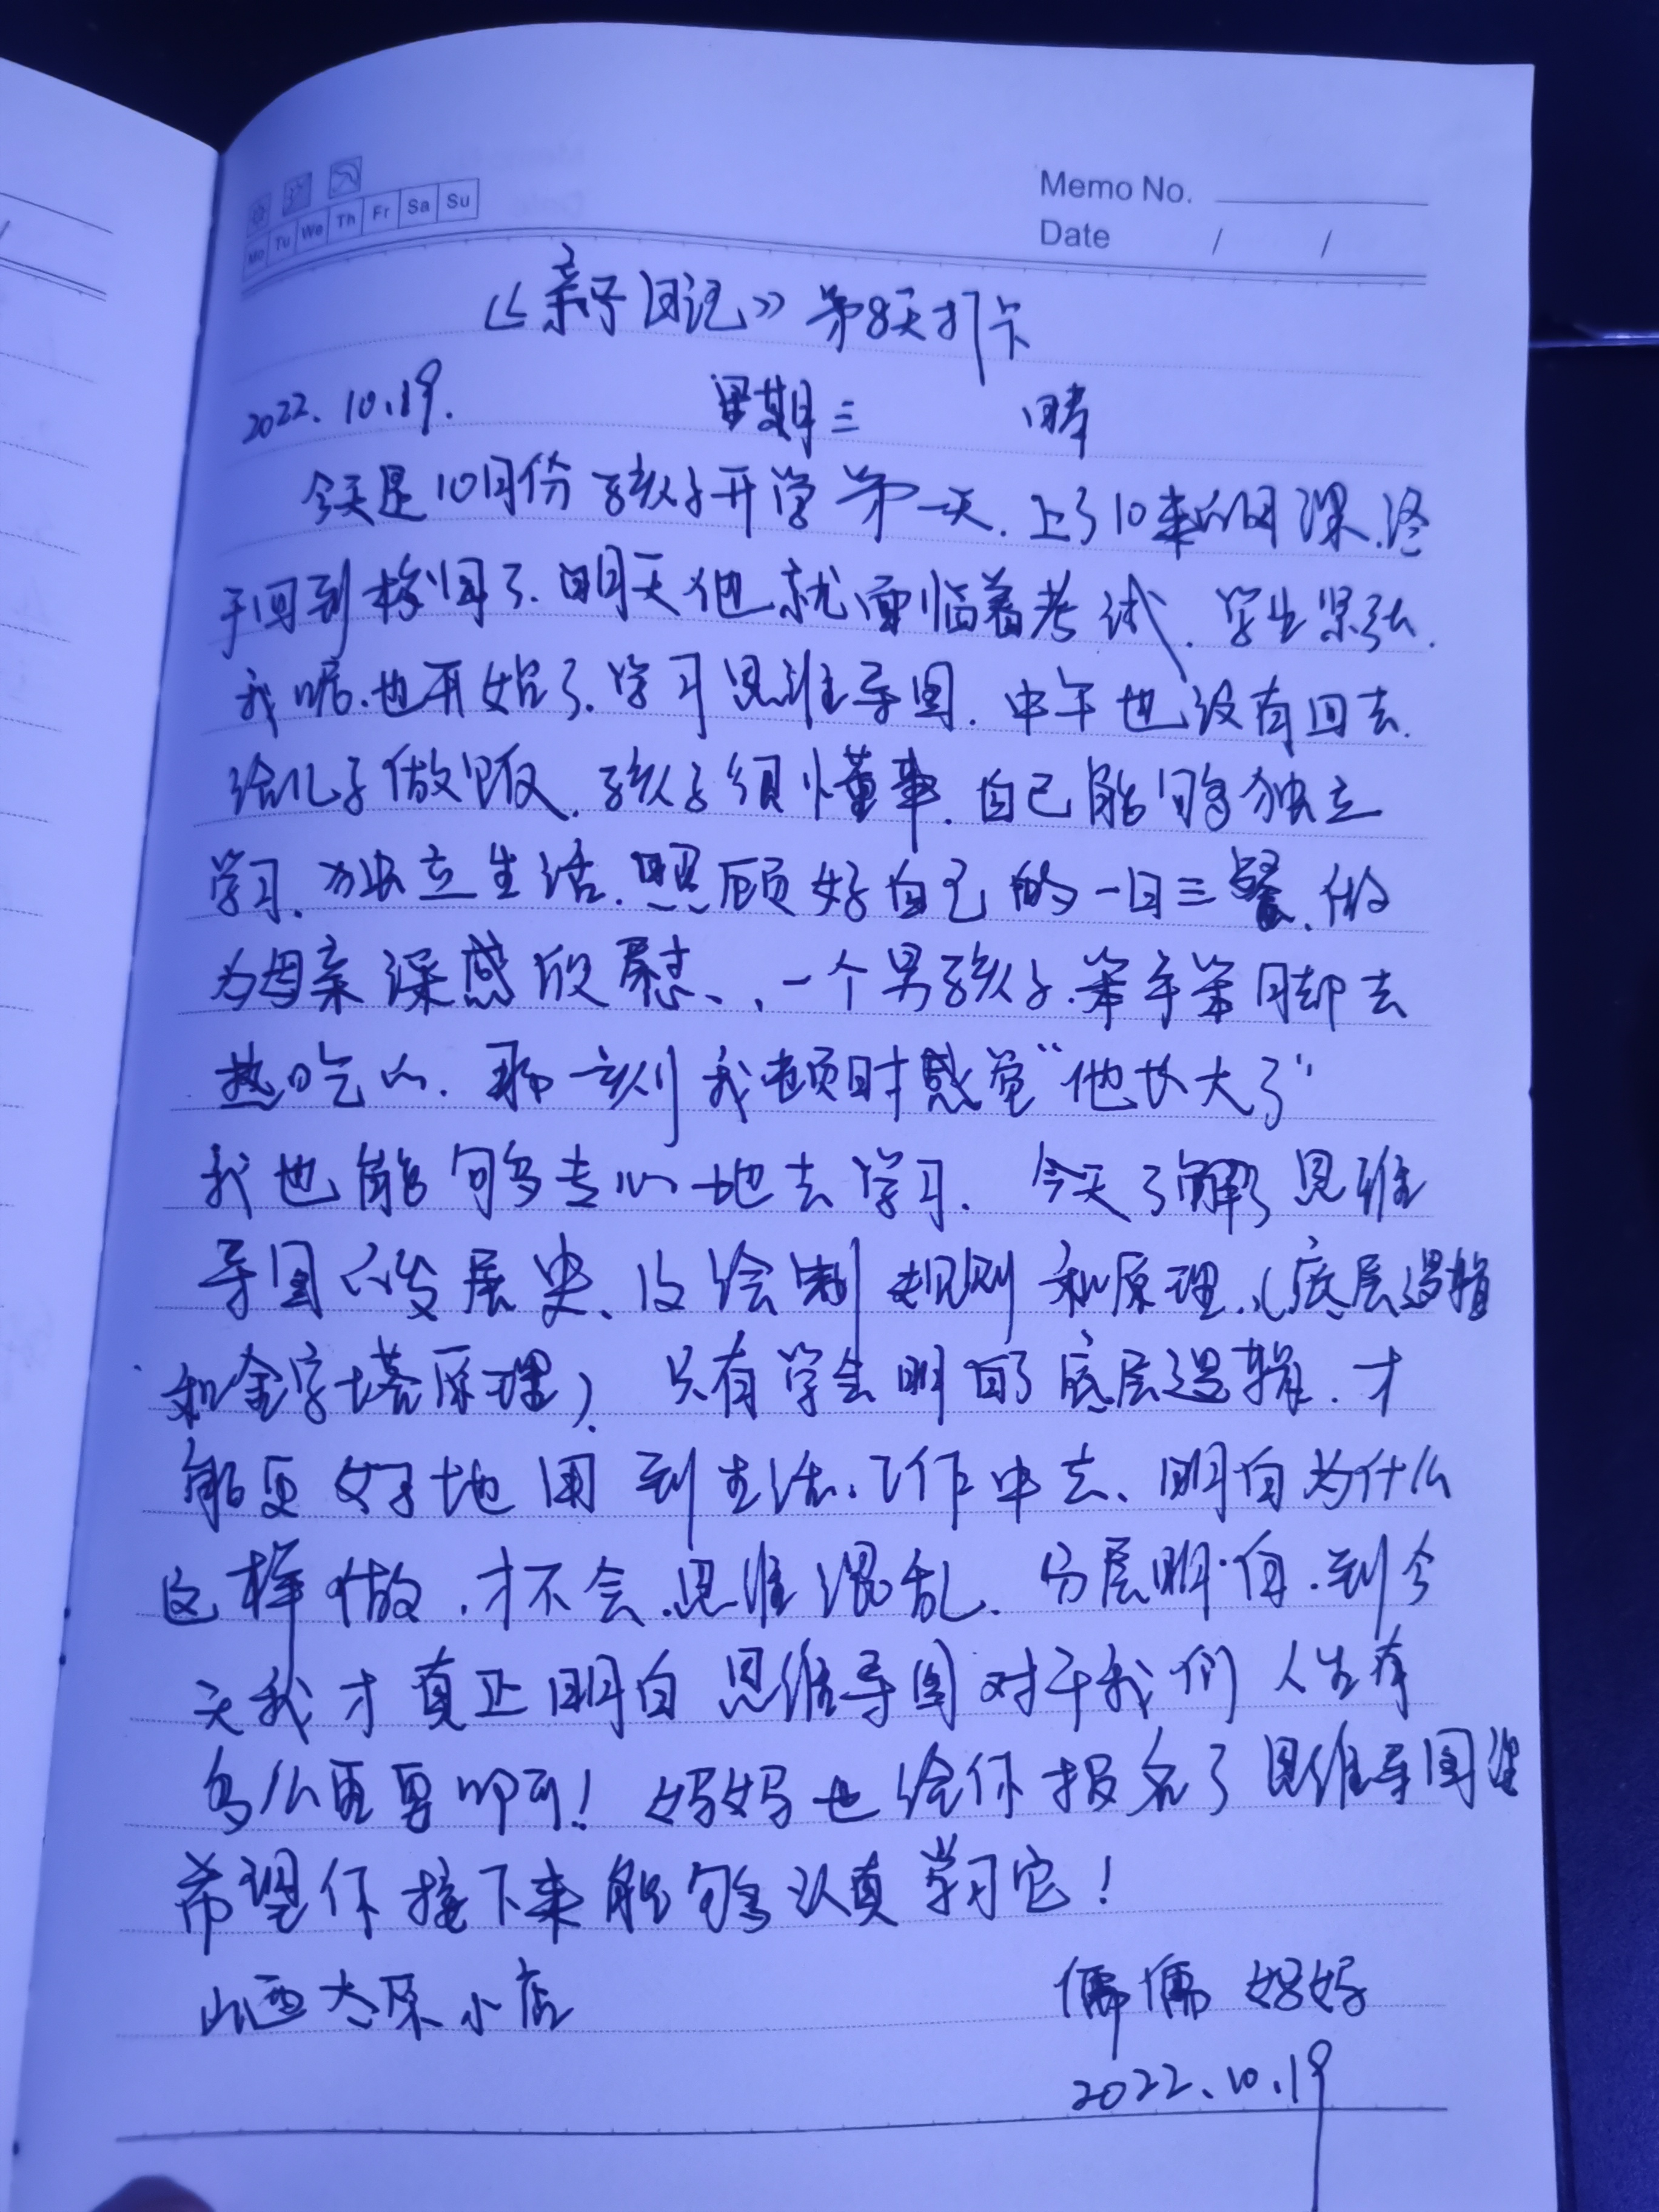 Memo No.
Mo Tu We Th Fr Sa Su
Date / /
《亲子日记》第8天打卡
2022.10.19. 星期三 晴
今天是10月份孩子开学第一天.上了10来的网课.终
于回到校园了.明天他就面临着考试.学生紧张.
我呢.也开始了.学习思维导图.中午也没有回去.
给儿子做饭.孩子须懂事.自己能够独立
学习.独立生活.照顾好自己的一日三餐.做
为母亲深感欣慰、.一个男孩子.笨手笨脚去
热吃的.那一刻我顿时感觉“他长大了”
我也能够专心地去学习.今天了解了思维
导图的发展史、及绘制规则和原理.(底层逻辑
和金字塔原理).只有学会明白了底层逻辑.才
能更好地用到生活.工作中去、明白为什么
这样做.才不会.思维混乱.分层明白.到今
天我才真正明白思维导图对于我们人生有
多么重要啊!妈妈也给你报名了思维导图课
希望你接下来能够认真学习它!
山西太原小店 儒儒妈妈
2022.10.19